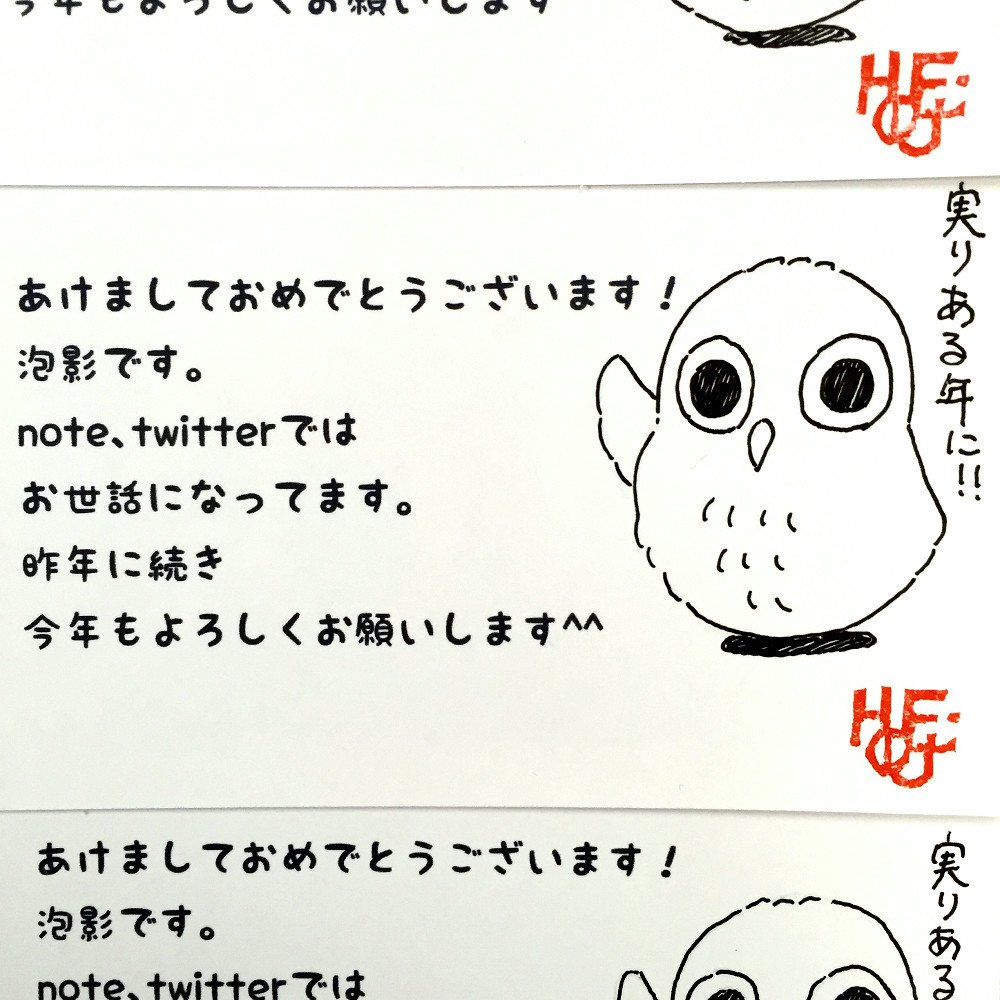 今年もよろしくお願いします
あけましておめでとうございます！
泡影です。
note、twitterでは
お世話になってます。
昨年に続き
今年もよろしくお願いします^^
実りある年に!!
あけましておめでとうございます！
泡影です。
note、twitterでは
実りある